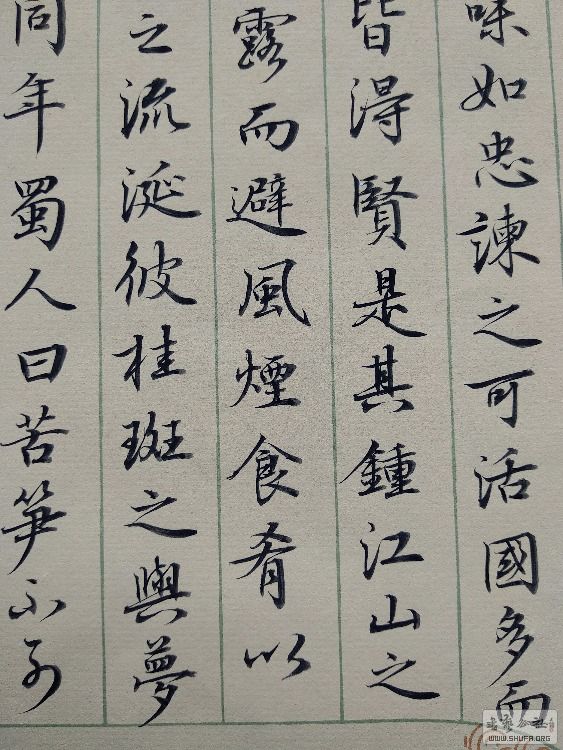 味如忠諫之可活國多而
皆得賢是其鍾江山之
露而避風煙食肴以
之流涎彼桂斑之與夢
同年蜀人曰苦笋不可
WWW.SHUFA.ORG